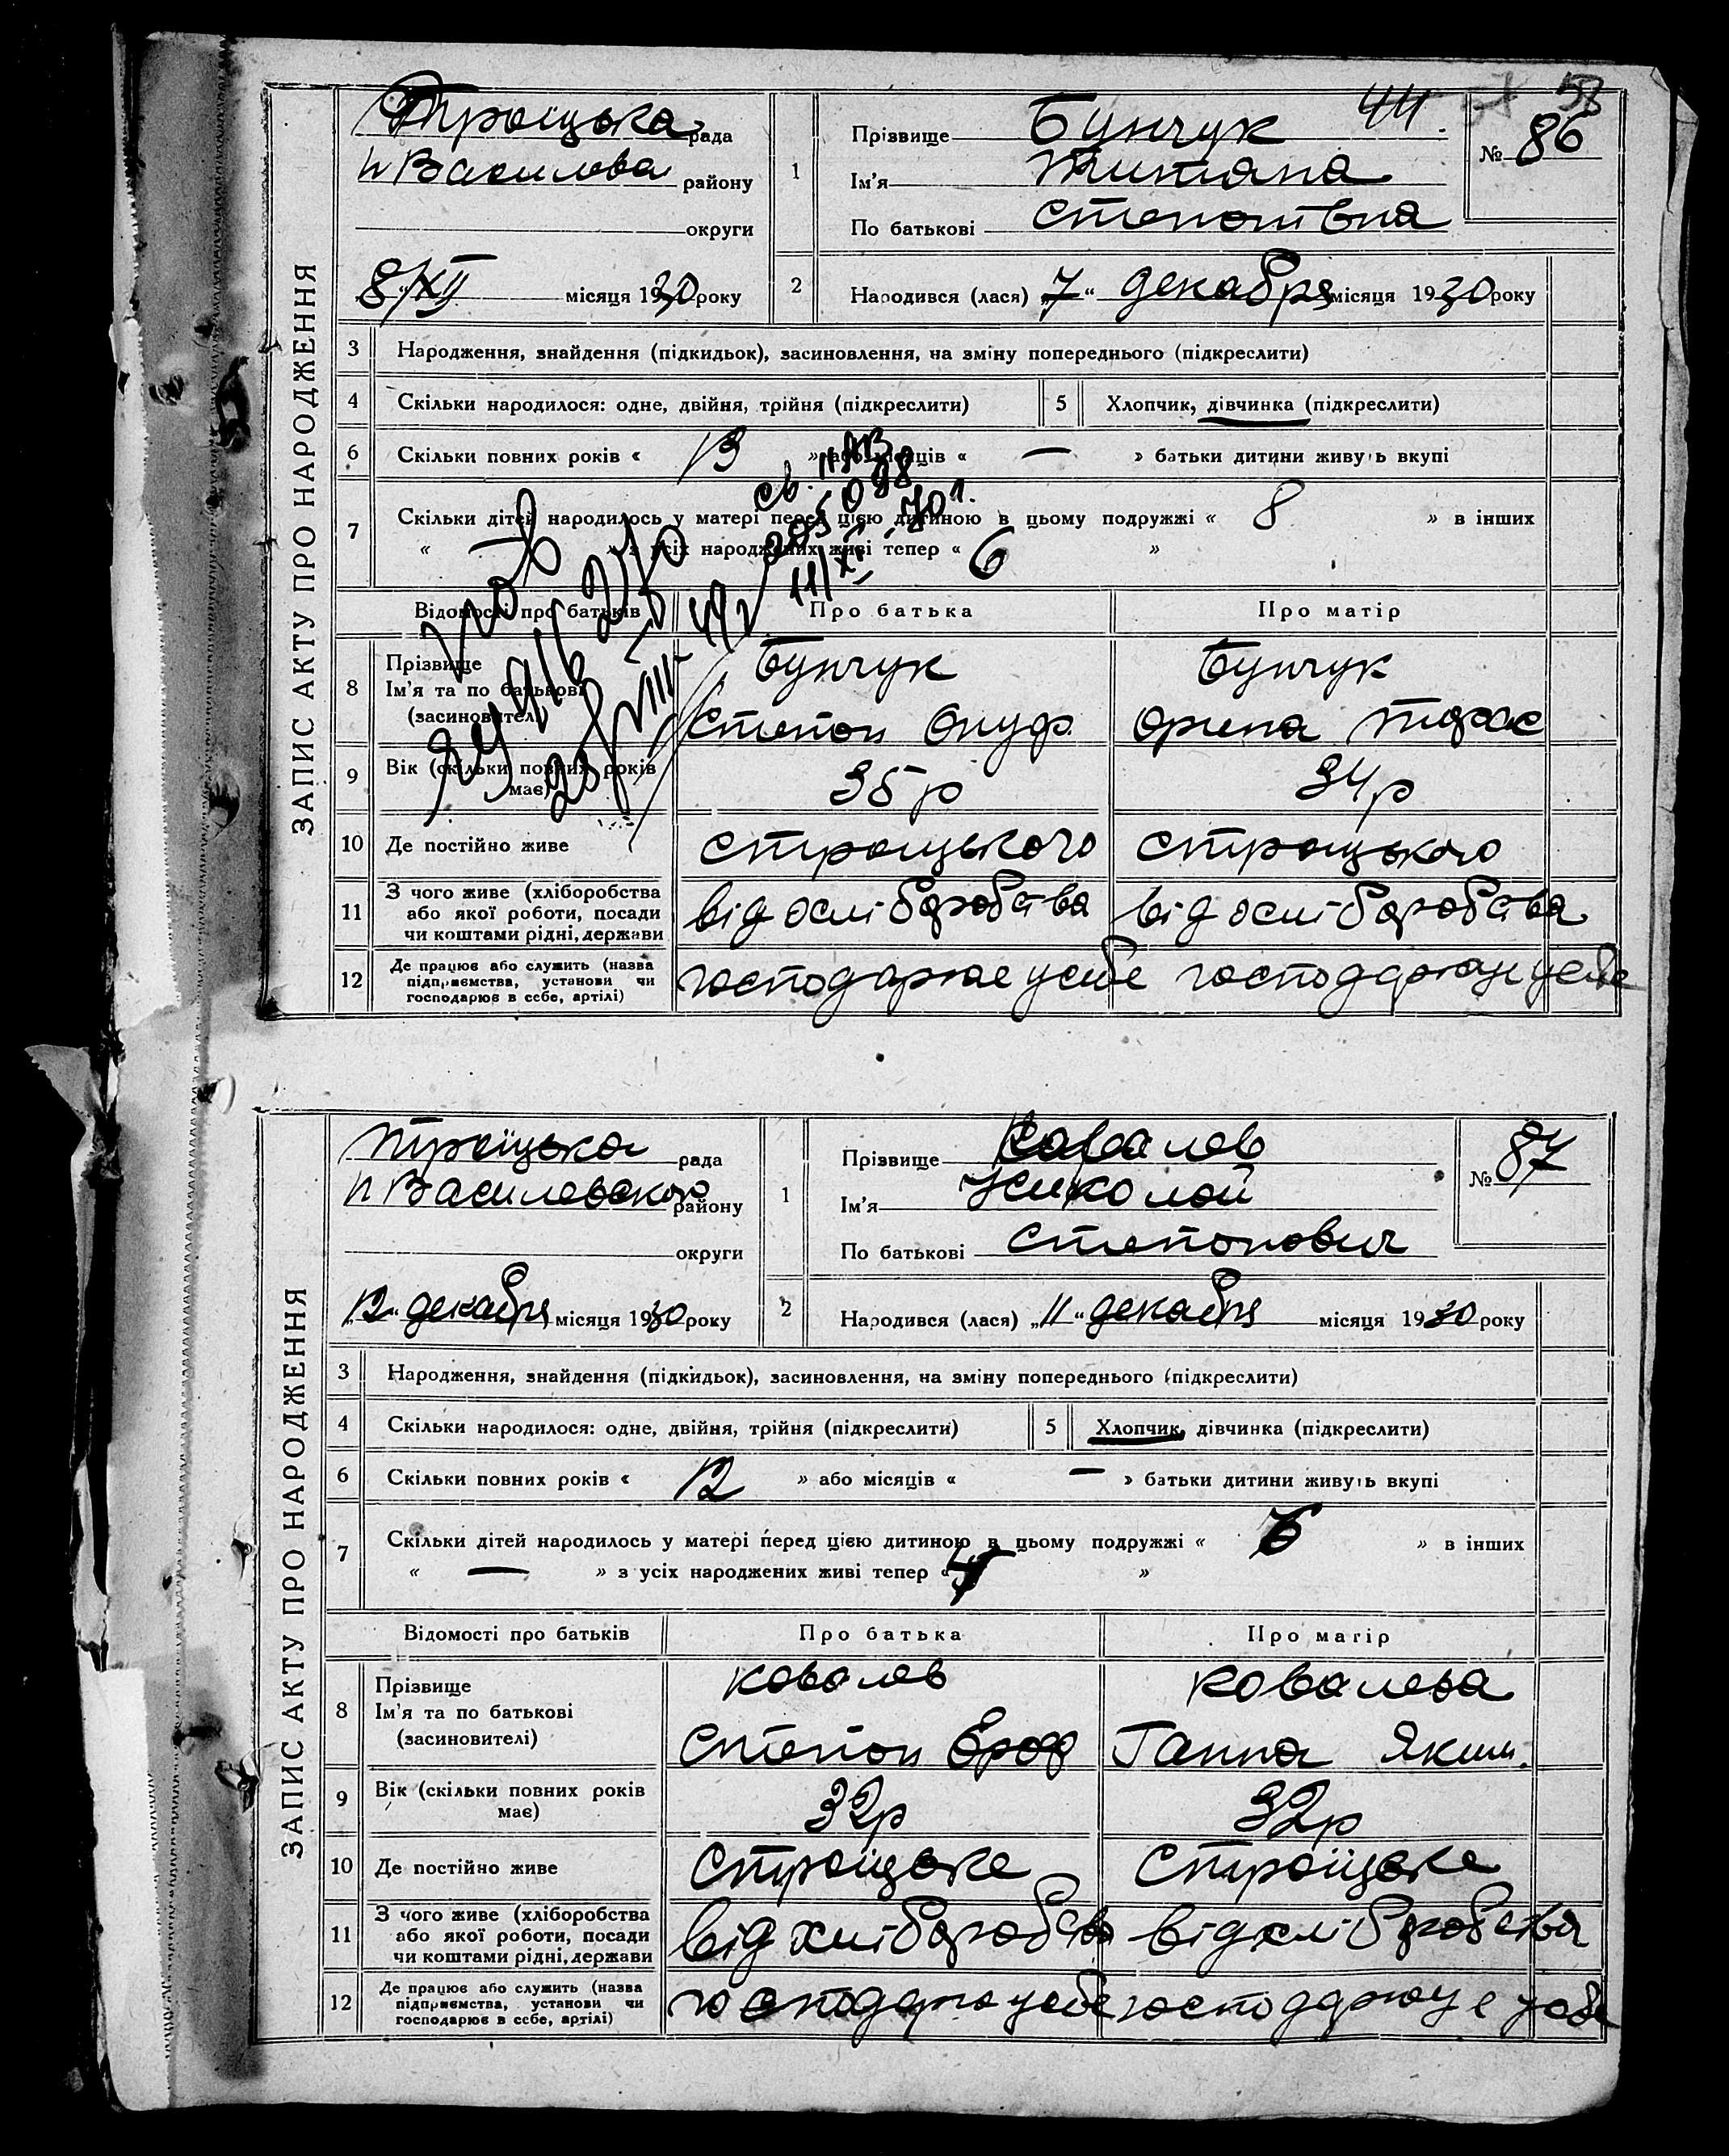 ЗАПИС АКТУ ПРО НАРОДЖЕННЯ
44. 53
Троїцька рада
н Василева району
округи
8/XII місяця 1930 року
1
Прізвище Бунчук
Ім'я Титяна
По батькові Степонівна
№ 86
2
Народився (лася) „7“ декабря місяця 1930 року
3 Народження, знайдення (підкидьок), засиновлення, на зміну попереднього (підкреслити)
4 Скільки народилося: одне, двійня, трійня (підкреслити) 5 Хлопчик, дівчинка (підкреслити)
6 Скільки повних років « 13 » або місяців « — » батьки дитини живуть вкупі
7 Скільки дітей народилось у матері перед цією дитиною в цьому подружжі « 8 » в інших
« — » з усіх народжених живі тепер « 6 »
Відомості про батьків Про батька Про матір
8 Прізвище Бунчук Бунчук
Ім'я та по батькові
(засновителі) Степон Онуф. Орина Тарас
9 Вік (скільки повних років має) 35 р 34 р
10 Де постійно живе Строіцького Строіцького
11 З чого живе (хліборобства
або якої роботи, посади
чи коштами рідні, держави від хліборобства від хліборобства
12 Де працює або служить (назва
підприємства, установи чи
господарює в себе, артілі) господарюе усебе господарюе усебе
ЗАПИС АКТУ ПРО НАРОДЖЕННЯ
Троїцька рада
н Василевского району
округи
„12“ декабря місяця 1930 року
1
Прізвище Ковалев
Ім'я Николай
По батькові Степонович
№ 87
2
Народився (лася) „11“ декабря місяця 1930 року
3 Народження, знайдення (підкидьок), засиновлення, на зміну попереднього (підкреслити)
4 Скільки народилося: одне, двійня, трійня (підкреслити) 5 Хлопчик, дівчинка (підкреслити)
6 Скільки повних років « 12 » або місяців « — » батьки дитини живуть вкупі
7 Скільки дітей народилось у матері перед цією дитиною в цьому подружжі « » в інших
« — » з усіх народжених живі тепер « »
Відомості про батьків Про батька Про матір
8 Прізвище Ковалев Ковалева
Ім'я та по батькові
(засиновителі) Степон Ганна Яким.
9 Вік (скільки повних років має) 32 р 32 р
10 Де постійно живе Строїцьке Строїцьке
11 З чого живе (хліборобства
або якої роботи, посади
чи коштами рідні, держави від хліборобства від хліборобства
12 Де працює або служить (назва
підприємства, установи чи
господарює в себе, артілі) господарюе усебе господарюе усебе